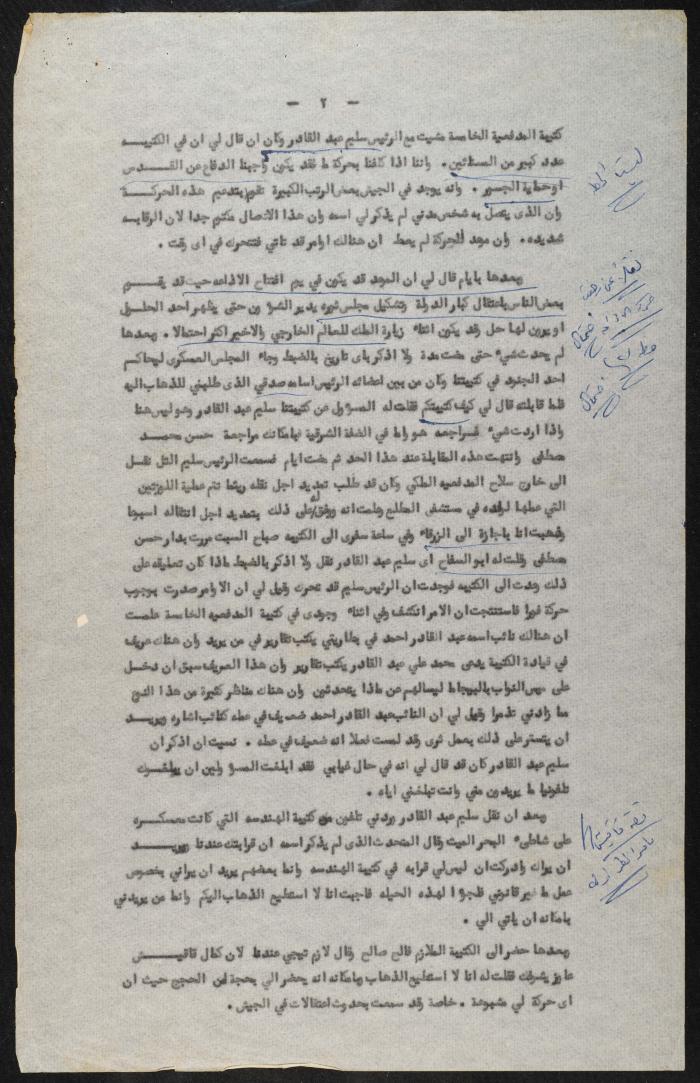 - ٢ -
كتيبة المدفعية الخامسة مشيت مع الرئيس سليم عبد القادر وكان ان قال لي ان في الكتيبــــة
عدد كبير من المستائين . واننا اذا كلفنا بحركة ما فقد يكون واجبنا الدفاع عن القــدس
او حماية الجسور . وانه يوجد في الجيش بعض الرتب الكبيرة تقوم بتدعيم هذه الحركــــة
وان الذى يتصل به شخص مدني لم يذكر لي اسمه وان هذا الاتصال مكتوم جدا لان الرقابــه
شديده . وان موعد للحركة لم يعط ان هنالك اوامر قد تاتي فنتحرك في اى وقت .
وبعدها بايام قال لي ان الموعد قد يكون في يوم افتتاح الاذاعه حيث قد يقــــوم
بعض الناس باعتقال كبار الدولة وتشكيل مجلس ثوره يدير الشؤون حتى يظهر احد الحلــول
او يرون لها حل وقد يكون اثناء زيارة الملك للعالم الخارجي والاخير اكثر احتمالا . وبعدها
لم يحدث شيء حتى مضت مدة ولا اذكر باى تاريخ بالضبط وجاء المجلس العسكرى ليحاكم
احد الجنود في كتيبتنا وكان من بين اعضائه الرئيس اسامه صدقي الذى طلبني للذهاب اليه
فلما قابلته قال لي كيف كتيبتكم فقلت له المسؤول عن كتيبتنا سليم عبد القادر وهو ليس هنا
واذا اردت شيء فراجعه هو واما في الضفة الشرقية فبامكانك مراجعة حسن محمــد
مصطفى وانتهت هذه المقابلة عند هذا الحد ثم مضت ايام فسمعت الرئيس سليم التل نقــل
الى خارج سلاح المدفعيه الملكي وكان قد طلب تمديد اجل نقله ريثما تتم عملية اللوزتين
التي عملها لولده في مستشفى المطلع وعلمت انه ووفق له على ذلك بتمديد اجل انتقاله اسبوعا
وذهبت انا باجازة الى الزرقاء وفي ساعة سفرى الى الكتيبه صباح السبت مررت بدار حسن
مصطفى وقلت له ابو السفاح اى سليم عبد القادر نقل ولا اذكر بالضبط ماذا كان تعليقه على
ذلك وعدت الى الكتيبه فوجدت ان الرئيس سليم قد تحرك وقيل لي ان الاوامر صدرت بوجوب
حركة فورا فاستنتجت ان الامر انكشف وفي اثناء وجودى في كتيبة المدفعيه الخامسة علمــت
ان هنالك نائب اسمه عبد القادر احمد في بطاريتي يكتب تقارير في من يريد وان هناك عريف
في قيادة الكتيبة يدعى محمد علي عبد القادر يكتب تقارير وان هذا العريف سبق ان دخــل
على ميس النواب بالبيجاما ليسالهم عن ماذا يتحدثون وان هناك مناظر كثيرة من هذا النوع
مما زادني تذمرا وقيل لي ان النائب عبد القادر احمد ضعيف في عمله كنائب اشاره ويريــد
ان يتستر على ذلك بعمل ثورى وقد لمست فعلا انه ضعيف في عمله . نسيت ان اذكر ان
سليم عبد القادر كان قد قال لي انه في حال غيابي فقد ابلغت المسؤولين ان يبلغــوك
تلفونيا ما يريدون مني وانت تبلغني اياه .
وبعد ان نقل سليم عبد القادر وردني تلفون من كتيبة الهندسه التي كانت معسكــره
على شاطيء البحر الميت وقال المتحدث الذى لم يذكر اسمه ان قرابتك عندنا ويريـــد
ان يراك وادركت ان ليس لي قرابه في كتيبة الهندسه وانما بعضهم يريد ان يراني بخصوص
عمل ما غير قانوني فلجؤا لهذه الحيله فاجبت انا لا استطيع الذهاب اليكم وانما من يريدني
بامكانه ان ياتي الي .
وبعدها حضر الى الكتيبة الملازم فالح صالح وقال لازم تيجي عندنا لان كمال قاقيــش
عاوز يشوفك فقلت له انا لا استطيع الذهاب وبامكانه انه يحضر الي بحجة من الحجج حيث ان
اى حركة لي مشبوهة . خاصة وقد سمعت بحدوث اعتقالات في الجيش .